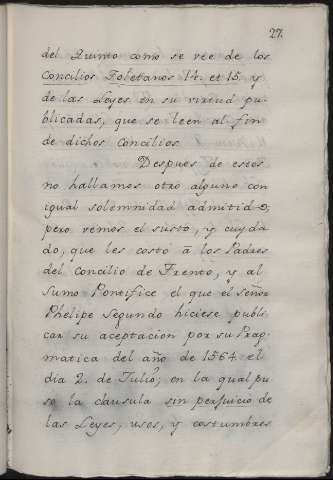 27.
del Quinto como se vee de los
Concilios Toletanos 14. et 15. y
de las Leyes en su virtud pu-
blicadas, que se leen al fin
de dichos concilios.
Despues de estos
no hallamos otro alguno con
igual solemnidad admitido;
pero vemos el susto, y cuyda
do, que les costó à los Padres
del concilio de Trento, y al
Sumo Pontifice el que el señor
Phelipe Segundo hiciese publi
car su aceptacion por su Prag-
matica del año de 1564 el
dia 2. de Julio, en la qual pu
so la clausula sin perjuicio de
las Leyes, usos, y costumbres